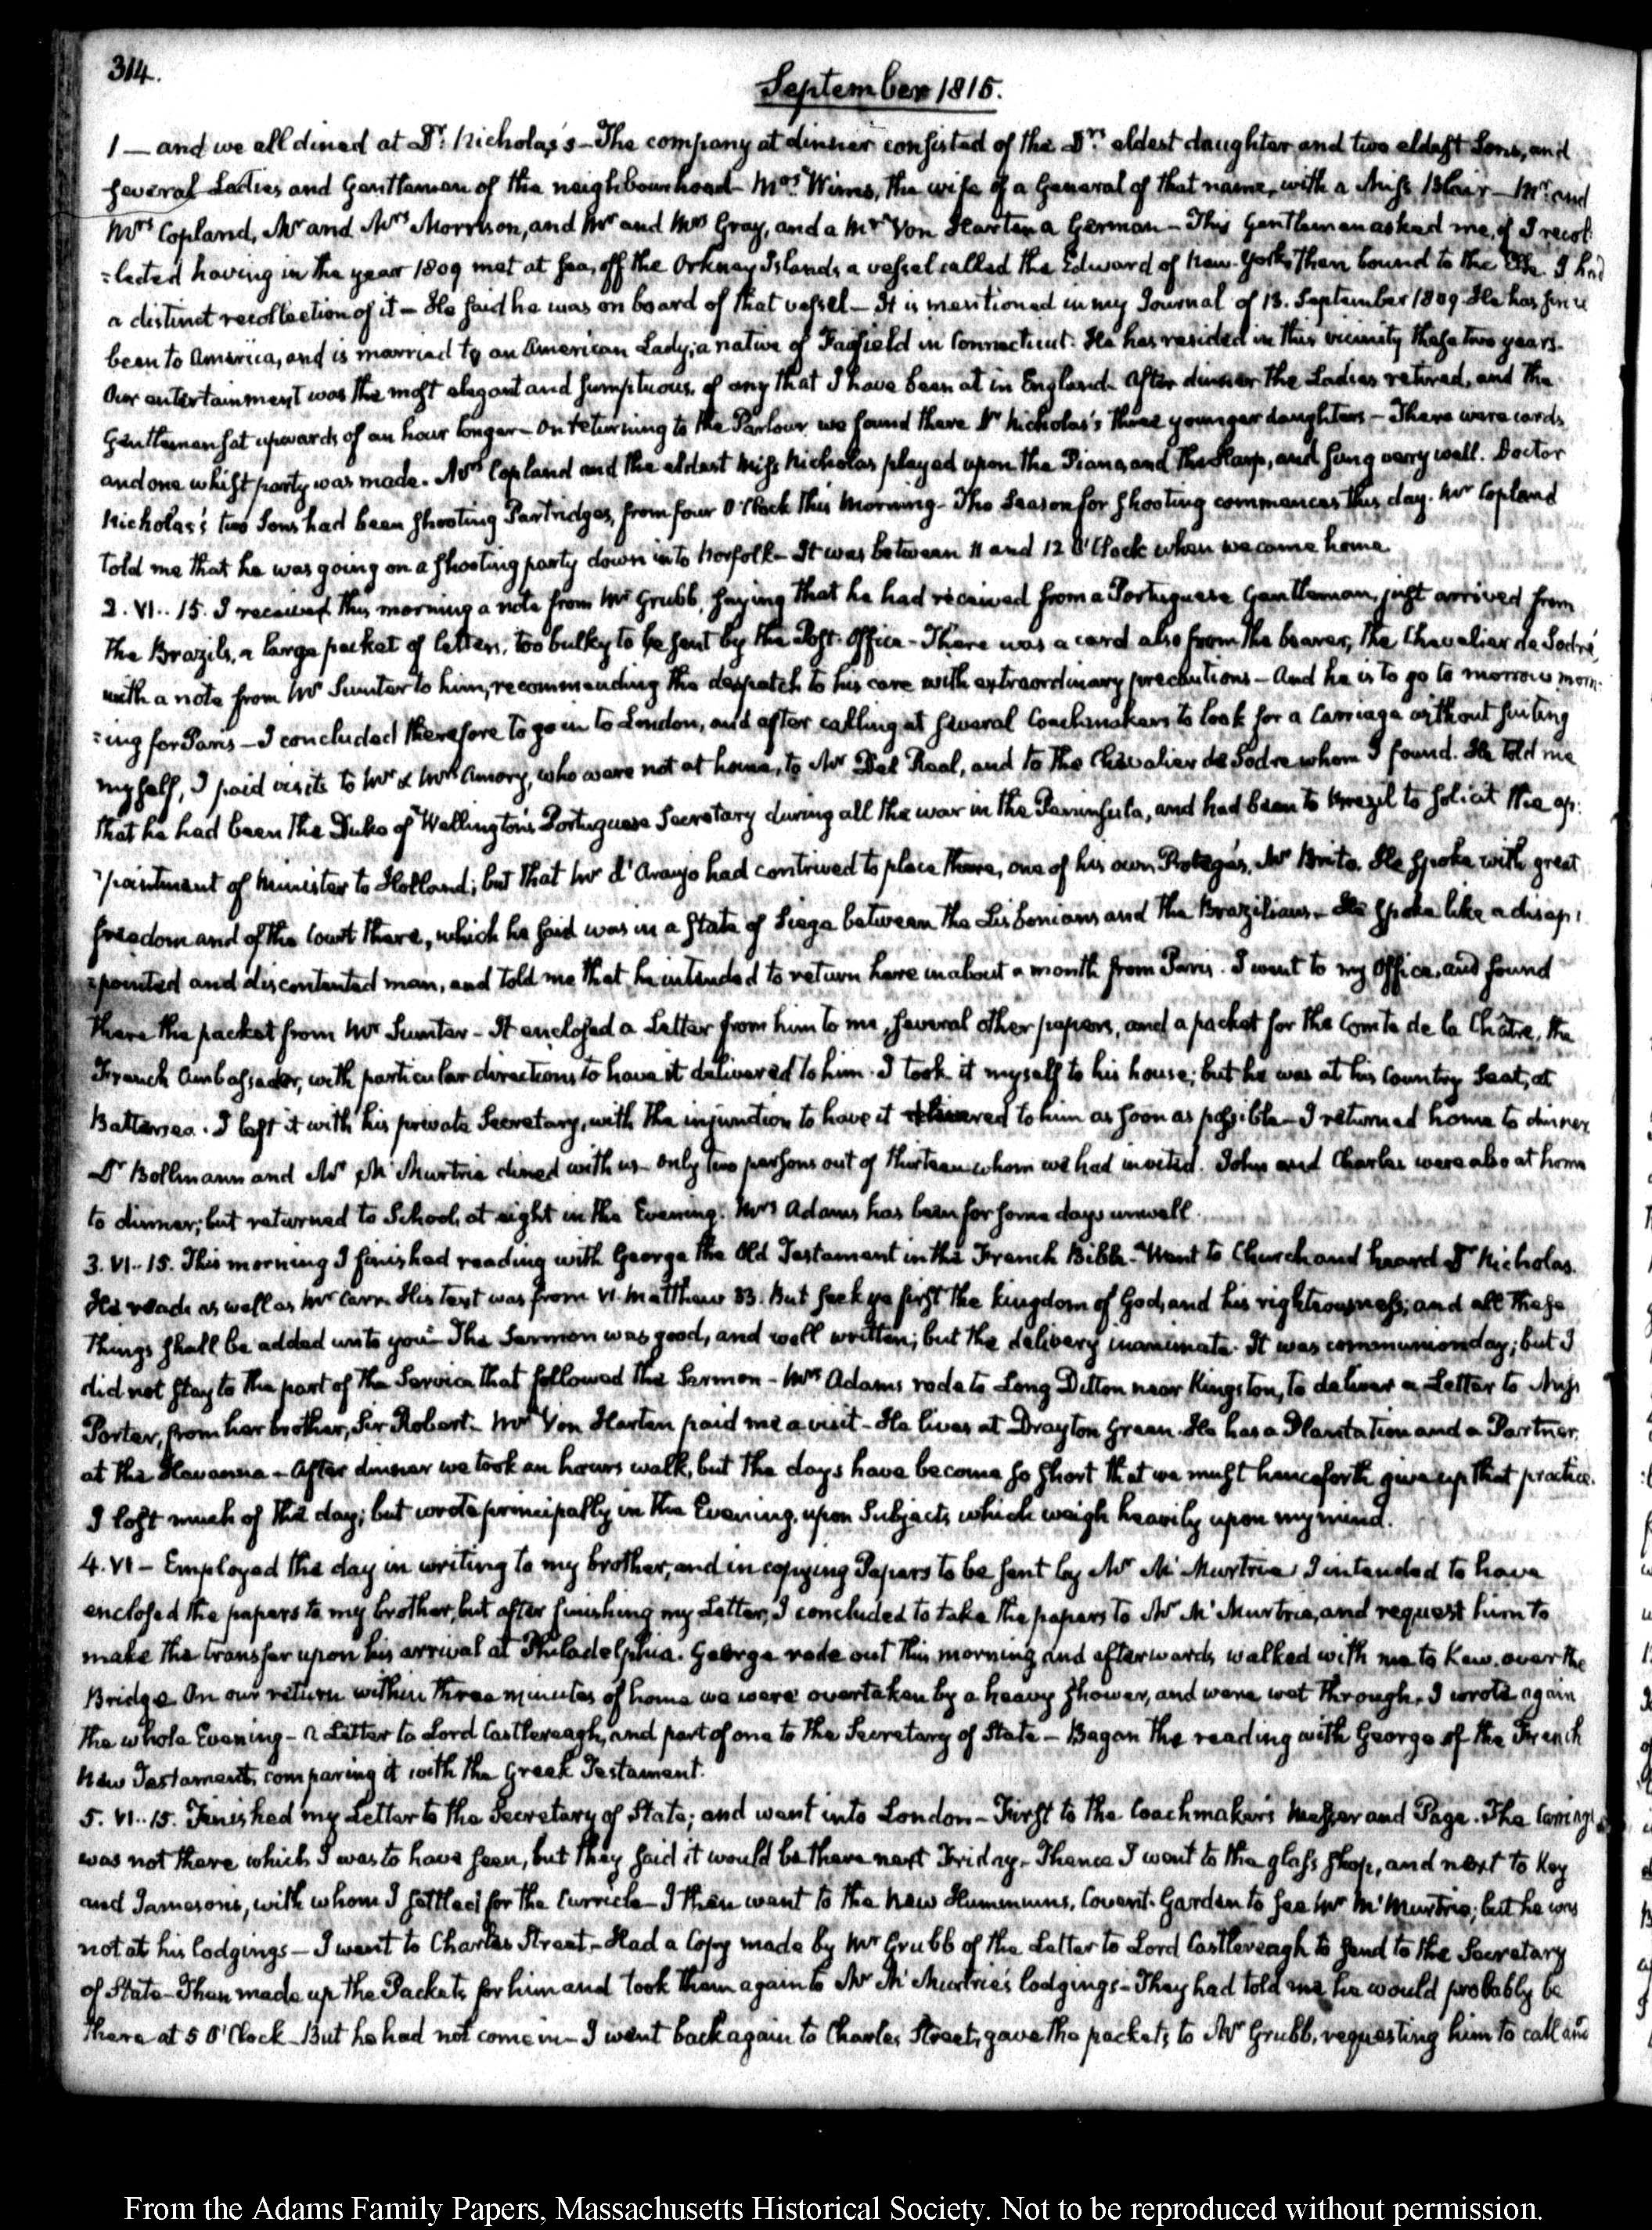 314.
September 1815.
1 — and we all dined at Dr. Nicholas's – The company at dinner consisted of the Drs. eldest daughter and two eldest Sons, and
several Ladies and Gentlemen of the neighbourhood – Mrs. Wims, the wife of a General of that name, with a Miss Blair – Mr. and
Mrs Copland, Mr and Mrs Morrison, and Mr and Mrs Gray, and a Mr Von Harten a German – This Gentleman asked me, if I recol-
=lected having in the year 1809 met at sea, off the Orkney Islands a vessel called the Edward of New-York, then bound to the Elbe. I had
a distinct recollection of it – He said he was on board of that vessel – It is mentioned in my Journal of 13. September 1809. He has since
been to America, and is married to an American Lady; a native of Fairfield in Connecticut. He has resided in this vicinity these two years.
Our entertainment was the most elegant and sumptuous, of any that I have been at in England. After dinner the Ladies retired, and the
Gentlemen sat upwards of an hour longer – On returning to the Parlour we found there Dr Nicholas's three younger daughters – There were cards,
and one whist party was made. Mrs Copland and the eldest Miss Nicholas played upon the Piano, and the Harp, and sung very well. Doctor
Nicholas's two Sons had been shooting Partridges, from four O'Clock this Morning – The Season for shooting commences this day. Mr Copland
told me that he was going on a shooting party down into Norfolk – It was between 11 and 12 O'Clock when we came home.
2. VI.. 15. I received this morning a note from Mr Grubb, saying that he had received from a Portuguese Gentleman, just arrived from
the Brazils, a large packet of letters, too bulky to be sent by the Post-Office – There was a card also from the bearer, the Chevalier de Sodré,
with a note from Mr Sumter to him, recommending the despatch to his care with extraordinary precautions – And he is to go to morrow morn-
=ing for Paris – I concluded therefore to go in to London, and after calling at several Coachmakers to look for a Carriage without suiting
myself, I paid visits to Mr & Mrs Amory, who were not at home, to Mr Del Real, and to the Chevalier de Sodre whom I found. He told me
that he had been the Duke of Wellington's Portuguese Secretary during all the war in the Peninsula, and had been to Brazil to solicit the ap-
=pointment of Minister to Holland; but that Mr d'Araujo had contrived to place there, one of his own Protegés, Mr Brito. He spoke with great
freedom and of the Court there, which he said was in a state of Siege between the Lisbonians and the Brazilians – He spoke like a disap-
=pointed and discontented man, and told me that he intended to return here in about a month from Paris. I went to my Office, and found
there the packet from Mr Sumter – It enclosed a Letter from him to me, several other papers, and a packet for the Comte de la Châtre, the
French Ambassador, with particular directions to have it delivered to him. I took it myself to his house; but he was at his Country Seat, at
Battersea. I left it with his private Secretary, with the injunction to have it delivered to him as soon as possible – I returned home to dinner
Dr Bollmann and Mr McMurtrie dined with us – only two persons out of thirteen whom we had invited. John and Charles were also at home
to dinner; but returned to School, at eight in the Evening. Mrs Adams has been for some days unwell.
3. VI.. 15. This morning I finished reading with George the Old Testament in the French Bible – Went to Church and heard Dr Nicholas.
He reads as well as Mr Carr. His text was from VI. Matthew 33. But seek ye first the kingdom of God, and his righteousness; and all these
things shall be added unto you – The Sermon was good, and well written; but the delivery inanimate. It was communion day; but I
did not stay to the part of the Service that followed the Sermon – Mrs Adams rode to Long Ditton near Kingston, to deliver a Letter to Miss
Porter, from her brother, Sir Robert. Mr Von Harten paid me a visit – He lives at Drayton Green. He has a Plantation and a Partner,
at the Havanna – After dinner we took an hours walk, but the days have become so short that we must henceforth give up that practice.
I lost much of the day; but wrote principally in the Evening, upon Subjects which weigh heavily upon my mind.
4. VI – Employed the day in writing to my brother, and in copying Papers to be sent by Mr McMurtrie. I intended to have
enclosed the papers to my brother, but after finishing my Letter, I concluded to take the papers to Mr McMurtrie, and request him to
make the transfer upon his arrival at Philadelphia. George rode out this morning and afterwards walked with me to Kew, over the
Bridge. On our return within three minutes of home we were overtaken by a heavy shower, and were wet through. I wrote again
the whole Evening – a Letter to Lord Castlereagh, and part of one to the Secretary of State – Began the reading with George of the French
New Testament, comparing it with the Greek Testament.
5. VI.. 15. Finished my Letter to the Secretary of State; and went into London – First to the Coachmaker's Messer and Page. The Carriage
was not there which I was to have seen, but they said it would be there next Friday – Thence I went to the glass shop, and next to Key
and Jameson's, with whom I settled for the Curricle – I then went to the New Hummums, Covent-Garden to see Mr McMurtrie; but he was
not at his lodgings – I went to Charles Street – Had a Copy made by Mr Grubb of the Letter to Lord Castlereagh to send to the Secretary
of State – Then made up the Packets for him and took them again to Mr McMurtrie's lodgings – They had told me he would probably be
there at 5 O'Clock – But he had not come in – I went back again to Charles Street, gave the packets to Mr Grubb, requesting him to call and
From the Adams Family Papers, Massachusetts Historical Society. Not to be reproduced without permission.